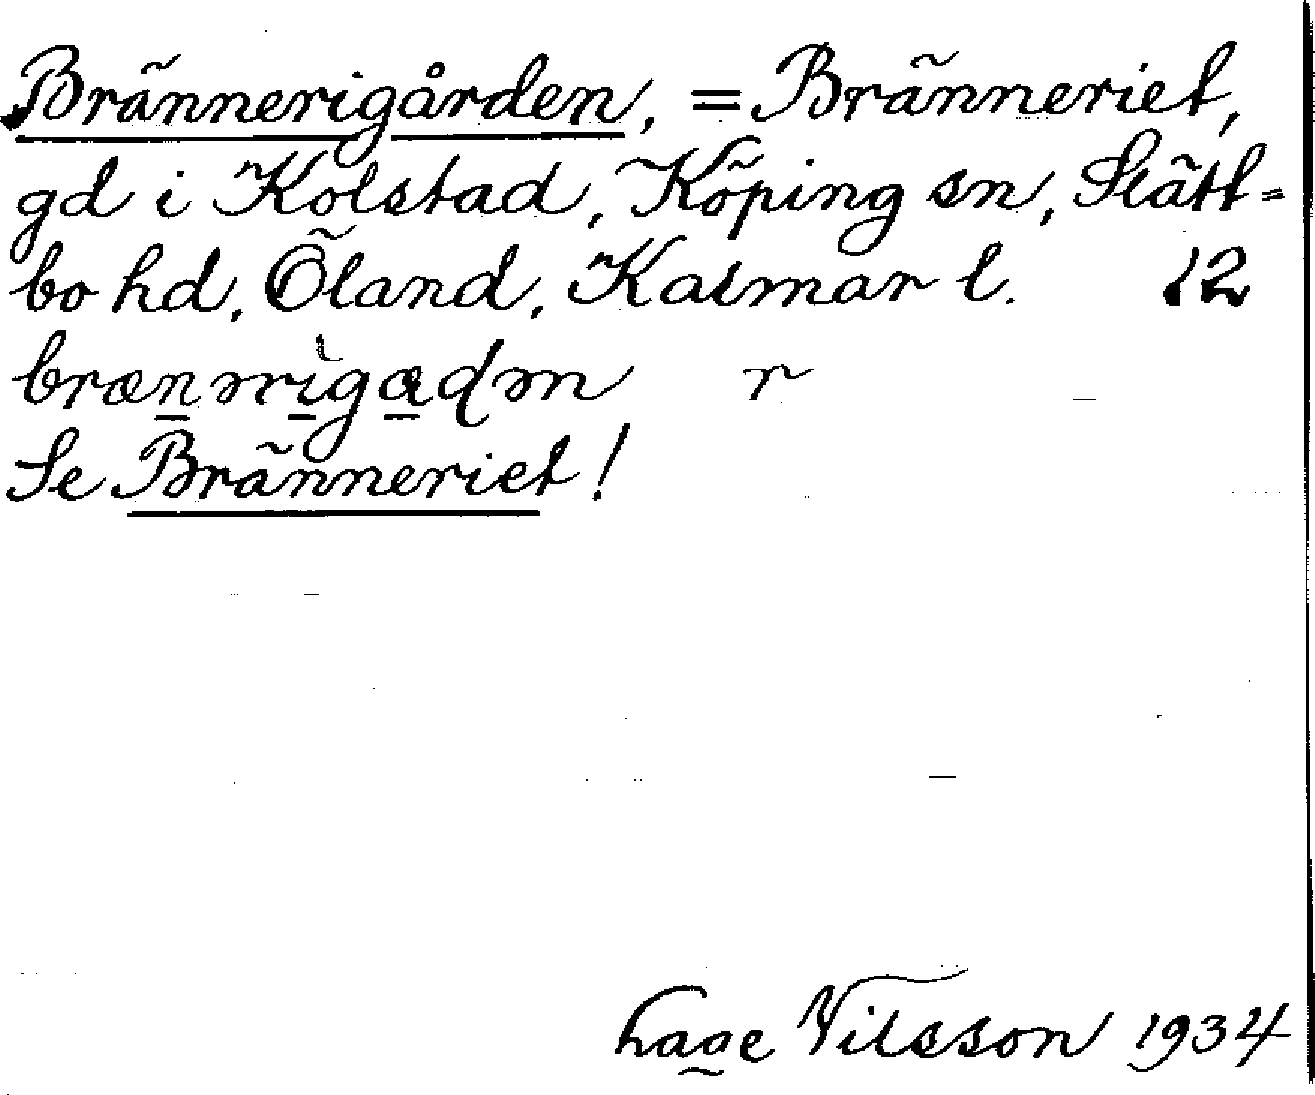 Brännerigården, = Bränneriet,
gd i Kolstad, Köping sn, Slätt-
bo hd, Öland, Kalmar l. 12
Se Bränneriet!
Nilsson 1934